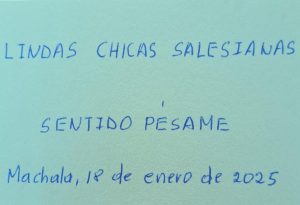 LINDAS CHICAS SALESIANAS
SENTIDO PÉSAME
Machala, 18 de enero de 2025